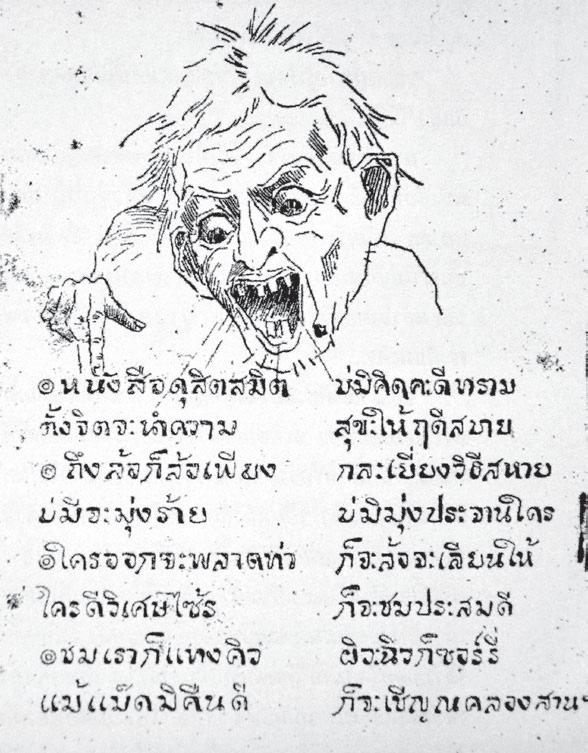 ๏ หนังสือดุสิตสมิต บ่มิคิดคะดีทราม
ตั้งจิตจะนำความ สุขะให้ฤดีสบาย
๏ ถึงล้อก็ล้อเพียง กละเยี่ยงวิธีสหาย
บ่มีจะมุ่งร้าย บ่มิมุ่งประจานใคร
๏ ใครออกจะพลาดท่า ก็จะล้อจะเลียนให้
ใครดีวิเศษไซ้ร ก็จะชมประสมดี
๏ ชมเราก็แทงคิว ผิวะฉิวก็ซอร์รี่
แม้แม็ดมิคืนดี ก็จะเชิญณคลองสานฯ